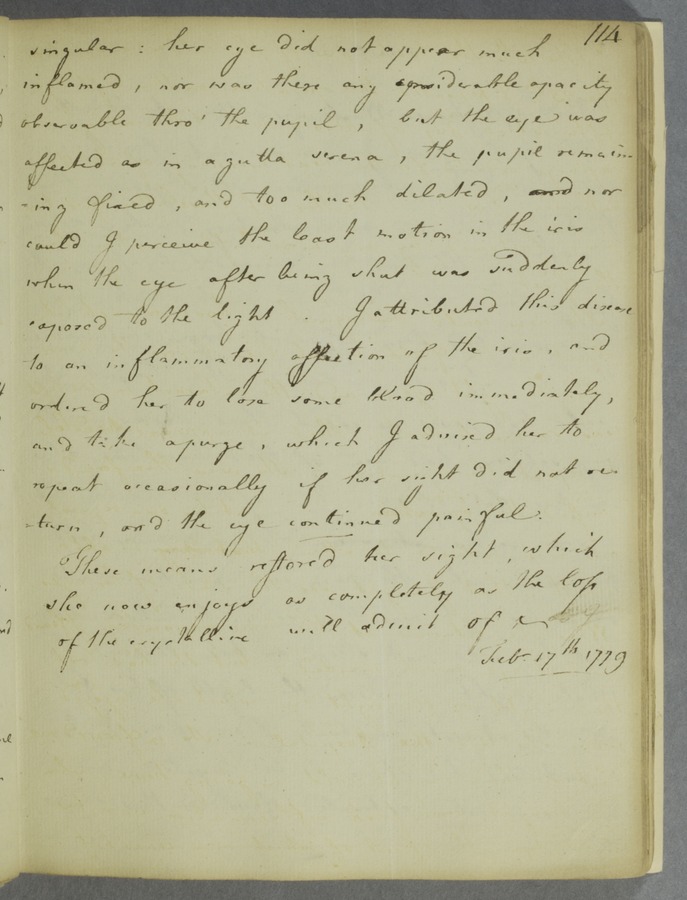 114
singular : her eye did not appear much
inflamed , nor was there any considerable opacity
observable thro' the pupil , but the eye was
affected as in a gutta serena , the pupil remain-
-ing fixed , and too much dilated , nor
could I perceive the least motion in the iris
when the eye after being shut was suddenly
exposed to the light . I attributed this disease
to an inflammatory affection of the iris , and
ordered her to lose some blood immediately,
and take a purge , which I advised her to
repeat occasionally if her sight did not re-
-turn , and the eye continued painful .
These means restored her sight , which
she now enjoys as completely as the loss
of the crystalline will admit of
Feb. 17th 1779